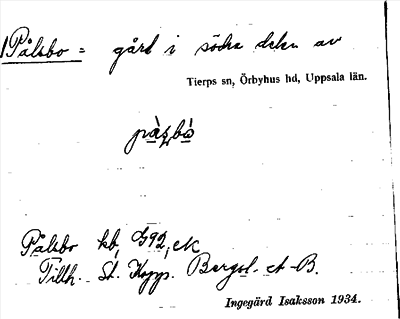 Pålsbo = gård i södra delen av
Tierps sn, Örbyhus hd, Uppsala län.
Pålsbo kb, G92, ek
Tillh. St. Kopp. Bergsl. A-B.
Ingegärd Isaksson 1934.